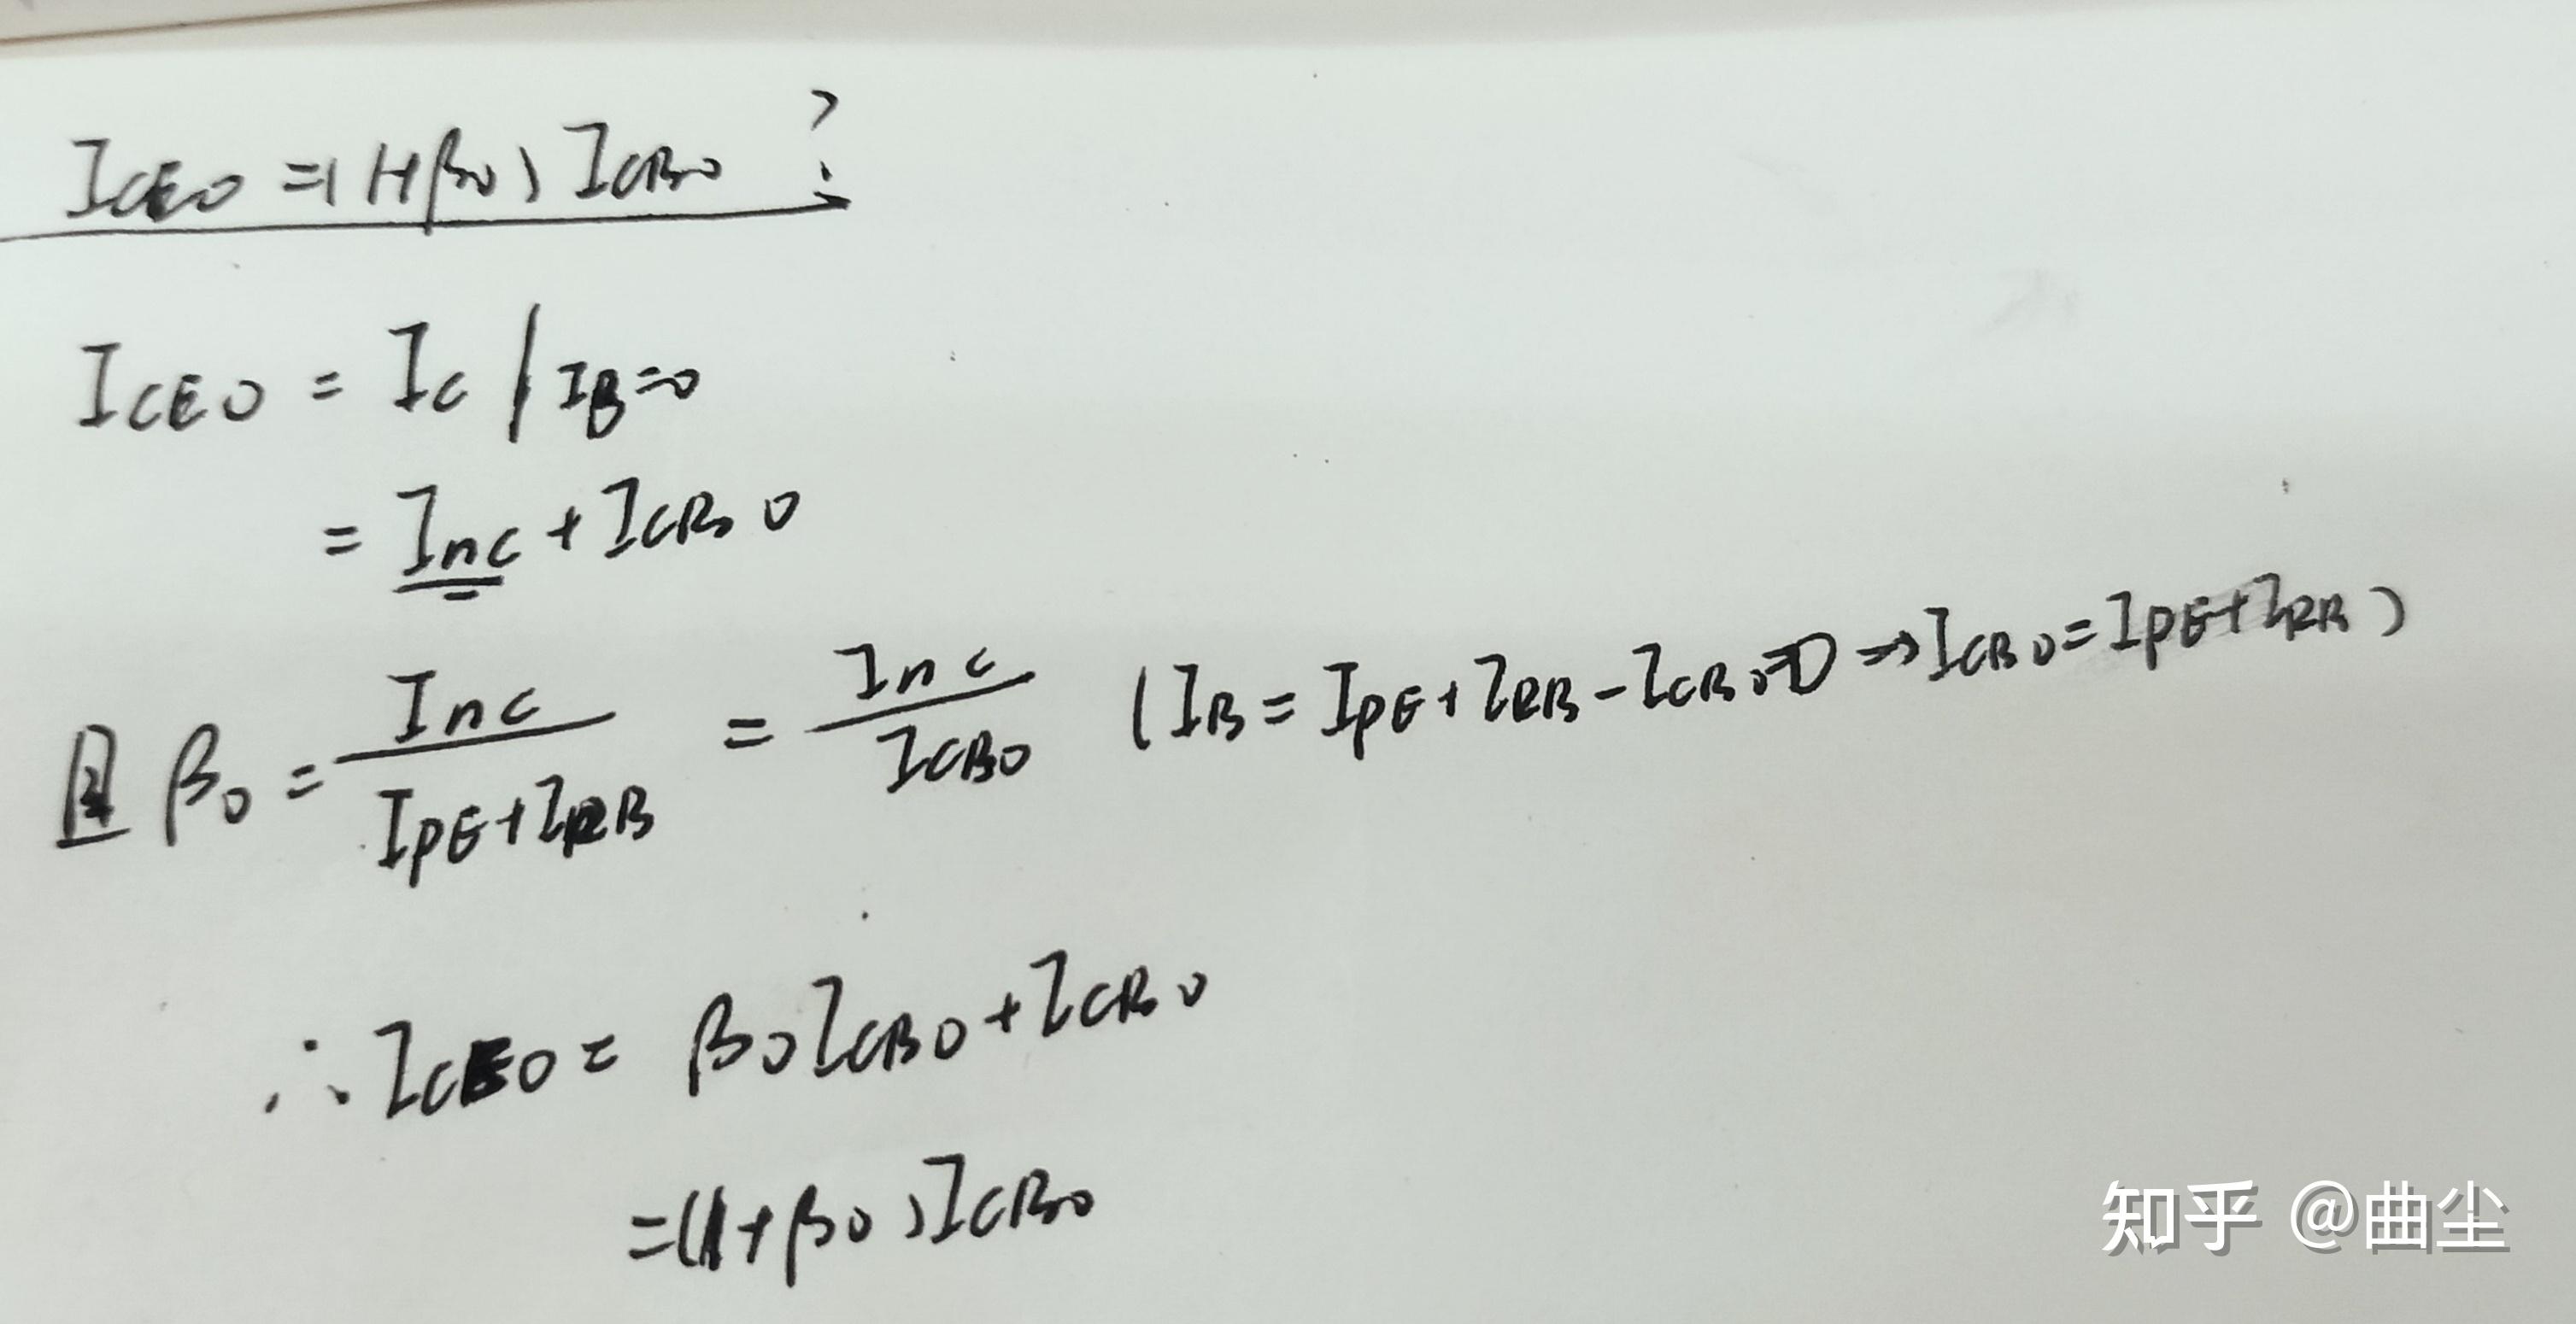 I_CEO = (1+β0) I_CBO ?
I_CEO = I_C | I_B=0
= I_nC + I_CBO
且 β0 = I_nC / (I_PE + I_RB) = I_nC / I_CBO (I_B = I_PE + I_RB - I_CBO = 0 ⇒ I_CBO = I_PE + I_RB)
∴ I_CEO = β0 I_CBO + I_CBO
= (1+β0) I_CBO
知乎 @曲尘